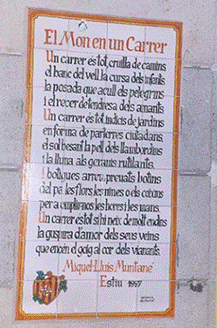 El Mon en un Carrer
Un carrer és tot, cruïlla de camins
el banc del vell, la cursa dels infants
la posada que acull els pelegrins
i el recer de tendresa dels amants.
Un carrer és tot, indicis de jardins
en forma de parterres ciutadans,
el sol besant la pell dels llambordins
i la lluna als geranis rutilants.
I botigues arreu, preuats
del pa les flors, les nines o els
per a omplir-nos les hores i les mans.
Un carrer és tot si hi neix de molt endins
la guspira d'amor dels seus veïns
que encén el goig al cor dels vianants.
Miquel-Lluís Muntané
Estiu 1997